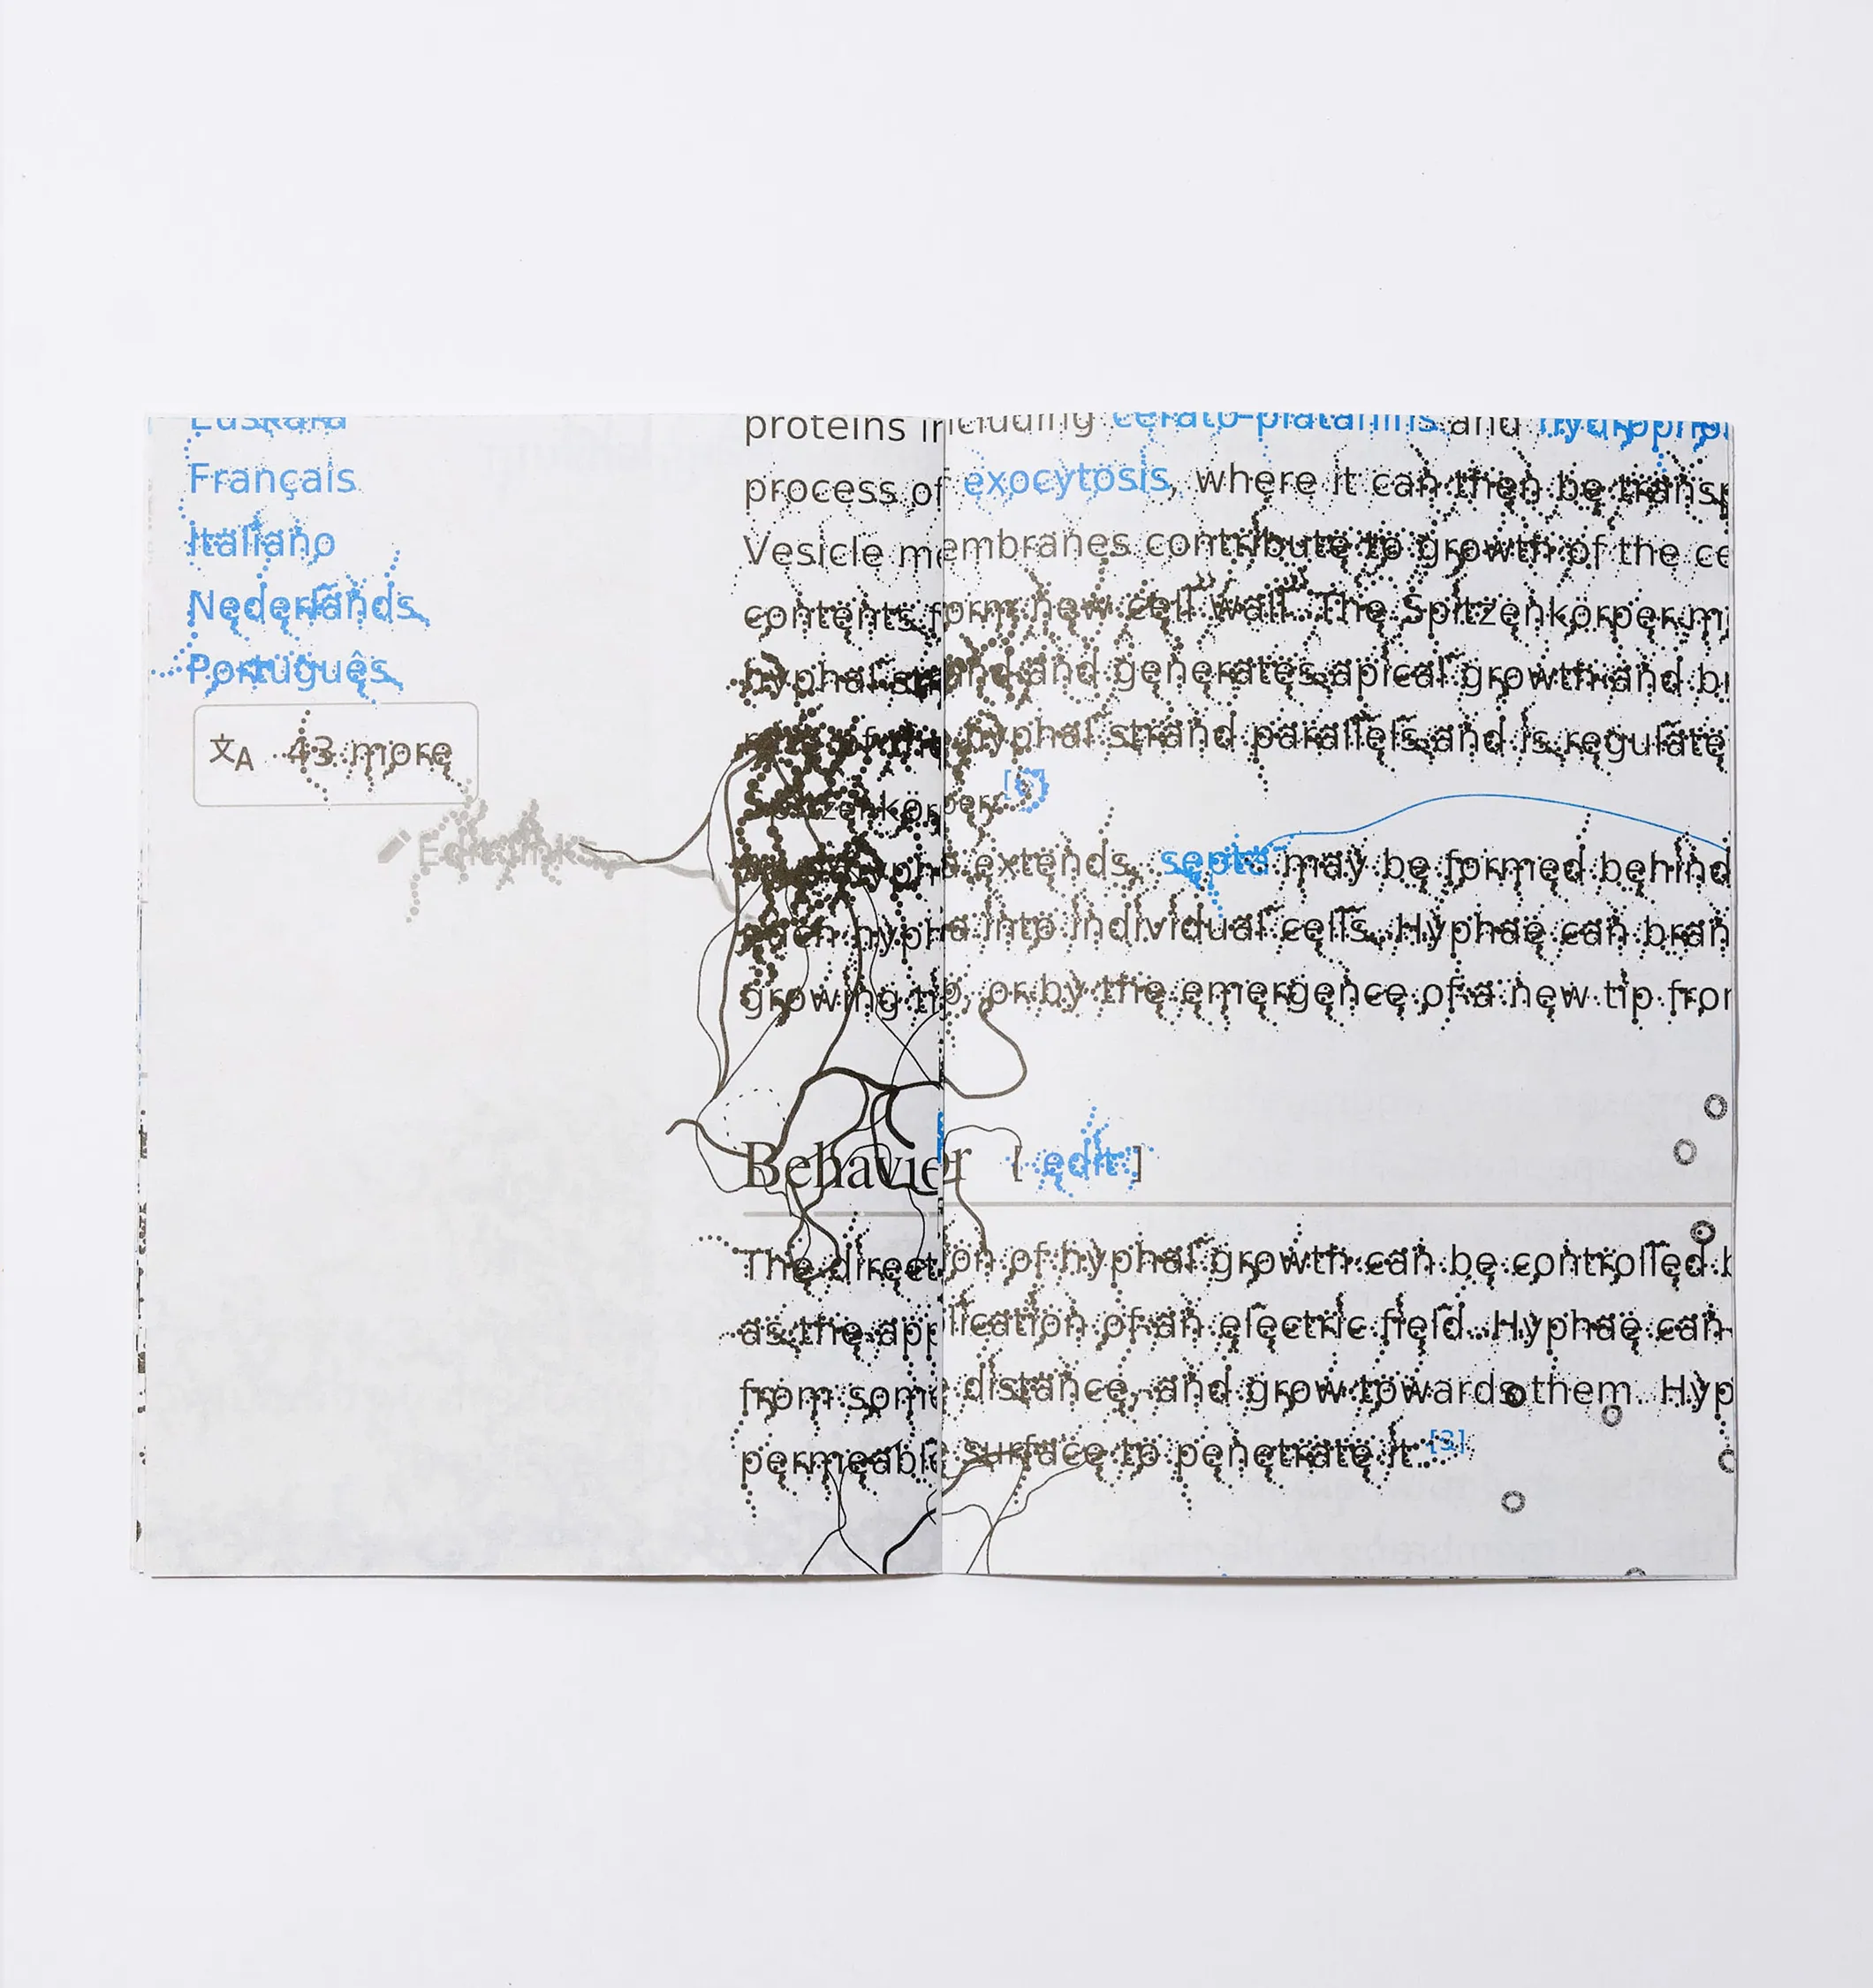 Euskara
Français
Italiano
Nederlands
Português
文A 43 more
Edit links
proteins including cerato-platanins and
process of exocytosis, where it can then be transp
Vesicle membranes contribute to growth of the ce
contents form new cell wall. The Spitzenkörper m
hyphal strand and generates apical growth and br
of the hyphal strand parallels and is regulate
Spitzenkörper.[6]
extends, septa may be formed behind
each hypha into individual cells. Hyphae can bran
growing tip, or by the emergence of a new tip fro
Behavior [ edit ]
The direction of hyphal growth can be controlled b
as the application of an electric field. Hyphae can
from some distance, and grow towards them. Hyp
permeable surface to penetrate it.[3]